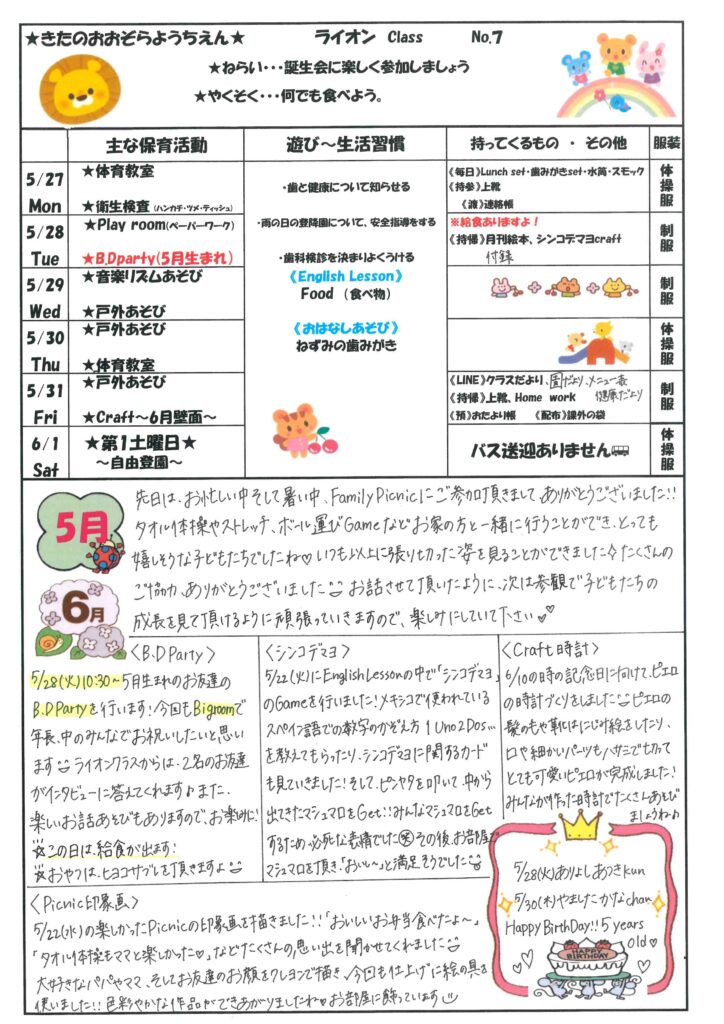 ★きたのおおぞらようちえん★ ライオン Class No.7
★ねらい・・・誕生会に楽しく参加しましょう
★やくそく・・・何でも食べよう。
主な保育活動 遊び～生活習慣 持ってくるもの ・ その他 服装
5/27 Mon
★体育教室
★衛生検査（ハンカチ・ツメ・ティッシュ）
・歯と健康について知らせる
《毎日》Lunch set・歯みがきset・水筒・スモック
《持参》上靴
《渡》連絡帳
体操服
5/28 Tue
★Play room（ペーパーワーク）
★B,Dparty（5月生まれ）
・雨の日の登降園について、安全指導をする
・歯科検診を決まりよくうける
※給食ありますよ！
《持帰》月刊絵本、シンコデマヨcraft
付録
制服
5/29 Wed
★音楽リズムあそび
★戸外あそび
《English Lesson》
Food （食べ物）
制服
5/30 Thu
★戸外あそび
★体育教室
《おはなしあそび》
ねずみの歯みがき
体操服
5/31 Fri
★戸外あそび
★Craft～6月壁面～
《LINE》クラスだより、園だより、メニュー表
健康だより
《持帰》上靴、Home work
《預》おたより帳 《配布》課外の袋
制服
6/1 Sat
★第1土曜日★
～自由登園～
バス送迎ありません
体操服
5月
先日は、お忙しい中そして暑い中、Family Picnicにご参加頂きまして、ありがとうございました!!
タオル体操やストレッチ、ボール運びGameなどお家の方と一緒に行うことができ、とっても
嬉しそうな子どもたちでしたね♡いつも以上に張り切った姿を見ることができました✧たくさんの
ご協力、ありがとうございました お話させて頂いたように、次は参観で子どもたちの
成長を見て頂けるように頑張っていきますので、楽しみにしていて下さい♡
6月
〈B.D Party〉
5/28(火)10:30～5月生まれのお友達の
B.D Partyを行います！今回もBigroomで
年長、中のみんなでお祝いしたいと思い
ます ライオンクラスからは、2名のお友達
がインタビューに答えてくれます♪また、
楽しいお話あそびもありますので、お楽しみに!
☆この日は、給食が出ます!
☆おやつは、ヒヨコサブレを頂きますよ
〈シンコデマヨ〉
5/22(火)にEnglish Lessonの中で「シンコデマヨ」
のGameを行いました！メキシコで使われている
スペイン語での数字のかぞえ方 1 Uno 2 Dos...
を教えてもらったり、シンコデマヨに関するカード
も見ていきました！そして、ピンヤタを叩いて、中から
出てきたマシュマロをGet!!みんなマシュマロをGet
するため、必死な表情でした㊗その後、お部屋で
マシュマロを頂き、「おいし～」と満足そうでした
〈Craft時計〉
6/10の時の記念日に向けて、ピエロ
の時計づくりをしました ピエロの
髪のもや靴はにじみ絵をしたり、
口や細かいパーツもハサミで切って
とても可愛いピエロが完成しました!
みんなが作った時計でたくさんあそび
ましょうね♪
〈Picnic印象画〉
5/22(水)の楽しかったPicnicの印象画を描きました!!「おいしいお弁当食べたよ～」
「タオル体操もママと楽しかった♡」などたくさんの思い出を聞かせてくれました
大好きなパパやママ、そしてお友達のお顔をクレヨンで描き、今回も仕上げに絵の具を
使いました!! 色彩やかな作品ができあがりましたね♡お部屋に飾っています
5/28(火)ありよしあつきkun
5/30(木)やましたかなchan
Happy BirthDay!! 5 years
old♡
HAPPY BIRTHDAY